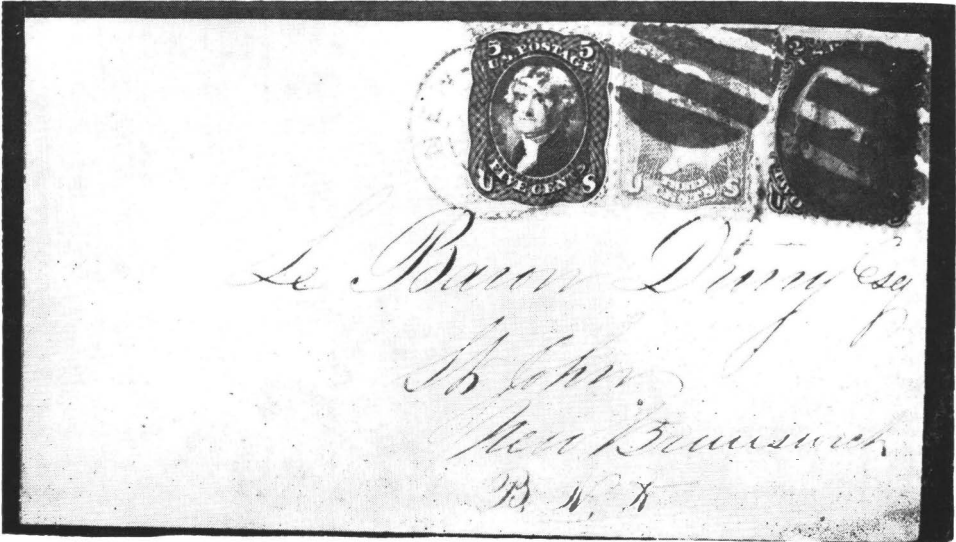 5 5
U.S. POSTAGE
FIVE CENTS
U S
U S
2
TWO
U
Le Baron Drury Esq
St John
New Brunswick
B. N. A